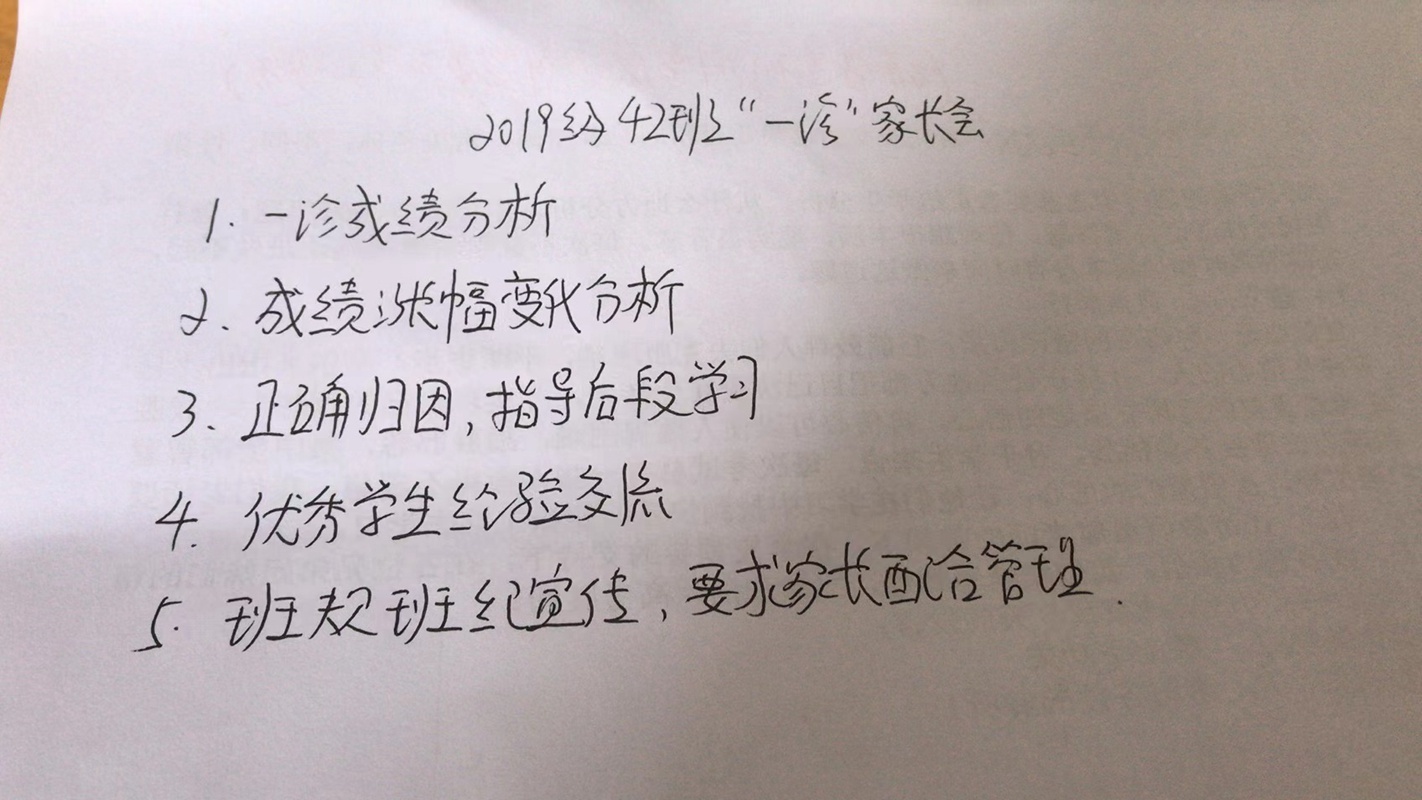 2019级42班"一诊"家长会
1. 一诊成绩分析
2. 成绩涨幅变化分析
3. 正确归因,指导后段学习
4. 优秀学生经验交流
5. 班规班纪宣传,要求家长配合管理.